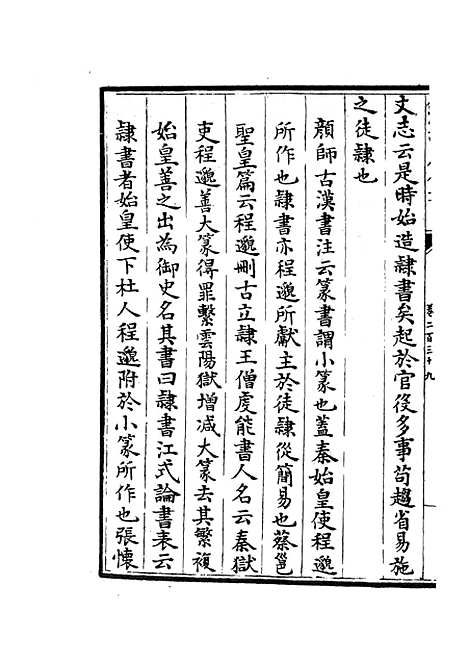 卷二百三十九
文志云是時始造隸書矣起於官役多事苟趨省易施
之徒隸也
顔師古漢書注云篆書謂小篆也蓋秦始皇使程邈
所作也隸書亦程邈所獻主於徒隸從簡易也蔡邕
聖皇篇云程邈刪古立隸王僧虔能書人名云秦獄
吏程邈善大篆得罪繫雲陽獄增减大篆去其繁複
始皇善之出為御史名其書曰隸書江式論書表云
隸書者始皇使下杜人程邈附於小篆所作也張懷